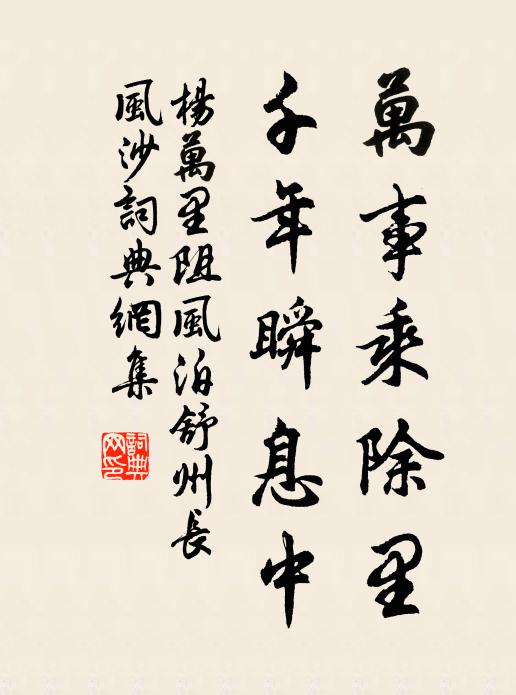 萬事乘除里
千年瞬息中
楊萬里阻風泊舒州長
風沙詞典網集
詞典网印